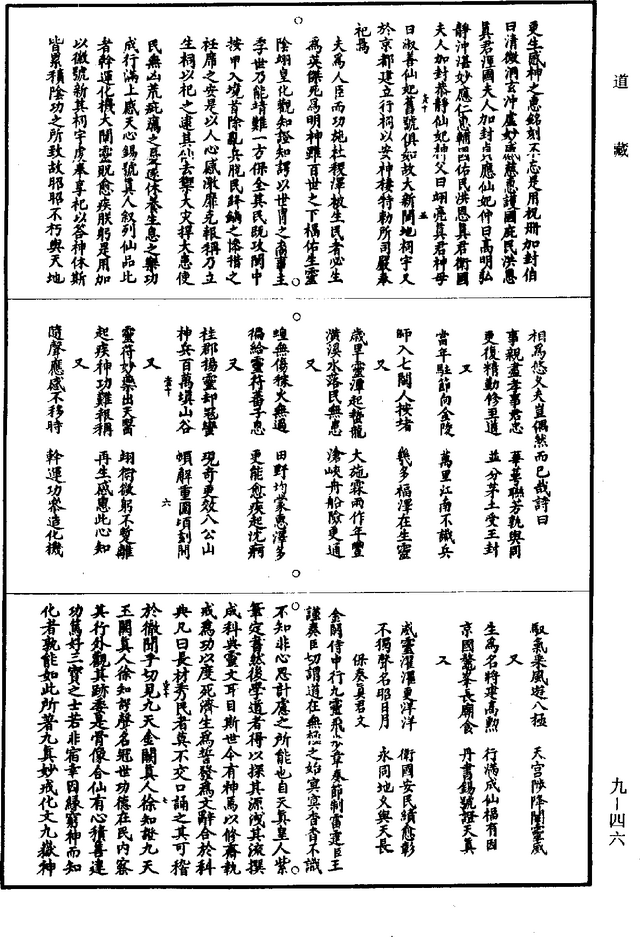 道藏
更生感神之惠銘刻不忘是用祝冊加封伯
曰清微洞玄沖虛妙感慈惠護國庇民洪恩
真君涇國夫人加封貞應仙妃仲曰高明弘
靜沖湛妙應仁惠輔國佑民洪恩真君衛國
夫人加封恭靜仙妃神父曰翊亮真君神母
曰淑善仙妃舊號俱如故大新閩地祠宇又
於京都建立行祠以安神棲特勒所司嚴奉
祀焉
夫為人臣而功施社稷澤被生民者必生
為英傑死為明神雖百世之下猶佑生靈
陰翊皇化觀知證知諤以世冑之裔事主
季世乃能靖難一方保全其民既攻閩中
按甲入境首除亂兵脫民鋒鏑之慘措之
衽席之安是以人心感激靡克報稱乃立
生祠以祀之逮其仙去禦大災捍大患使
民無凶荒疵癘之憂遂休養生息之樂功
成行滿上感天心錫號真人敘列仙品比
者幹運化機大闡靈貺愈疾朕躬是用加
以徽號新其祠宇虔奉享祀以答神休斯
皆累積陰功之所致故昭昭不朽與天地
相為悠久夫豈偶然而已哉詩曰
事親盡孝事君忠 華萼聯芳孰與同
更復精勤修至道 並分茅土受王封
又
當年駐節向金陵 萬里江南不識兵
師入七閩人按堵 幾多福澤在生靈
又
歲旱靈潭起蟄龍 大施霖雨作年豐
潢溪水落民無患 滄峽舟船險更通
又
蝗無傷稼火無過 田野均蒙惠澤多
徧給靈符蕃子息 更能愈疾起沈痾
又
桂郡揚靈却寇蠻 現奇更效八公山
神兵百萬填山谷 頃解重圍頃刻間
又
靈符妙藥出天醫 翊衛微躬不蹔離
起疾神功難報稱 再生感惠此心知
又
隨聲應感不移時 幹運功參造化機
馭氣乘風遊八極 天宮陟降闡靈威
又
生為名將建高勲 行滿成仙福有因
京國鰲峯長廟食 丹書錫號證天真
又
威靈濯濯更洋洋 衛國安民績愈彰
不獨聲名昭日月 永同地久與天長
保奏真君文
金闕侍中行九靈飛步章奏節制雷霆臣王
謹奏臣切謂道在無極之始冥冥杳杳不識
不知非心思計慮之所能也自天真皇人紫
筆定書然後學道者得以探其源浚其流撰
成科典靈文耳目斯世今有神焉以修齋執
戒為功以度死濟生為誓發為文辭合於科
典凡曰長材秀民者莫不交口誦之其可稽
於徹聞乎切見九天金闕真人徐知證九天
玉闕真人徐知諤聲名冠世功德在民內察
其行外觀其跡委是骨像合仙有心積善建
功篤好三寶之士若非宿幸因緣窮神而知
化者孰能如此所著九真妙戒化文九嶽神
九－四六